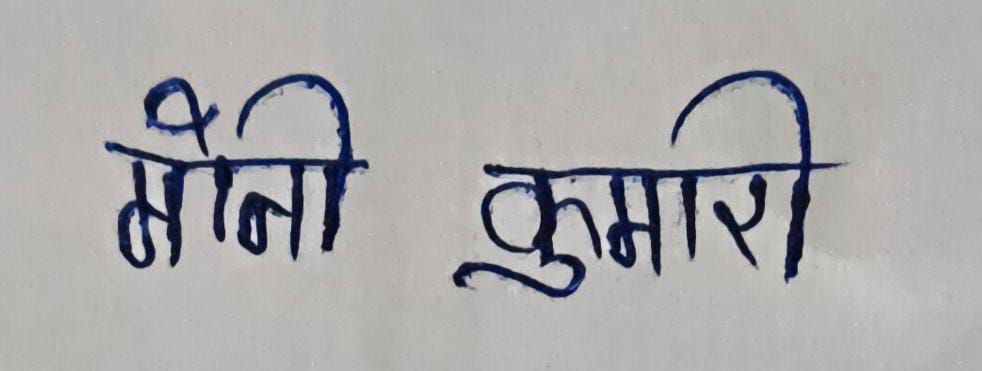 मोनी कुमारी